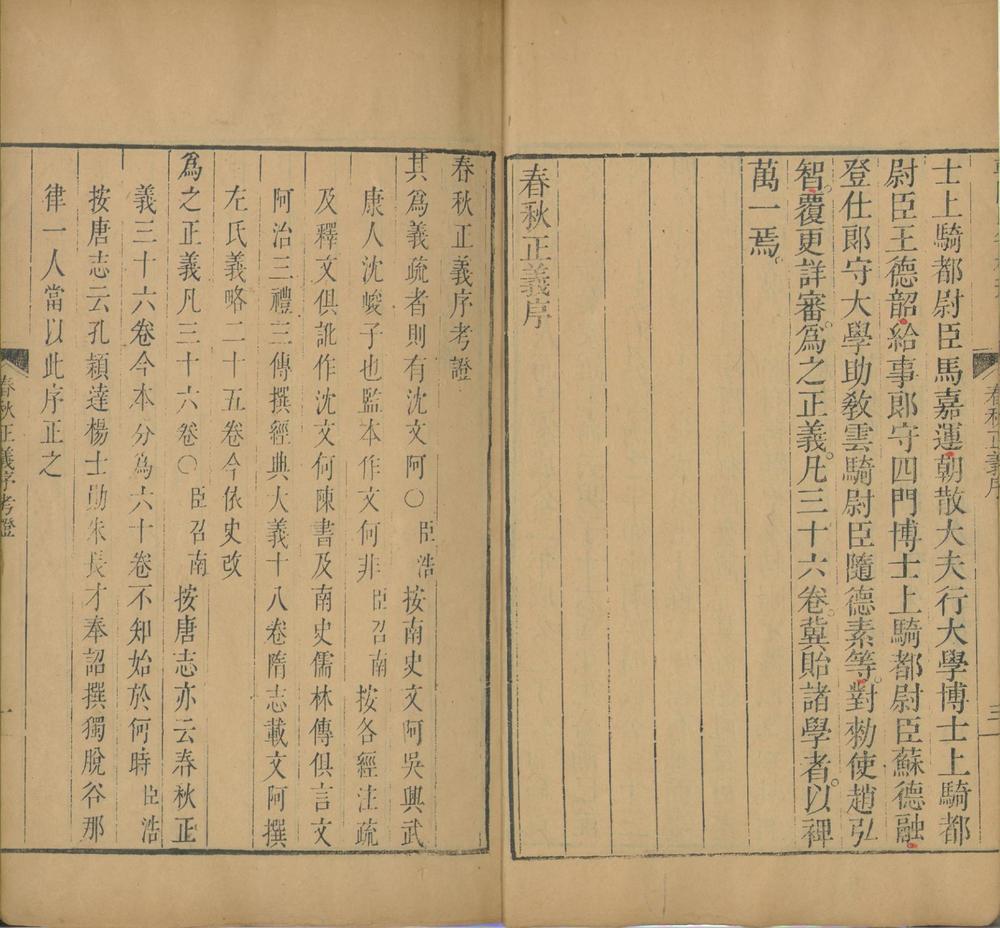 士上騎都尉臣馬嘉運朝散大夫行大學博士上騎都
尉臣王德韶給事郎守四門博士上騎都尉臣蘇德融
登仕郎守大學助教雲騎尉臣隨德素等對勑使趙弘
智覆更詳審爲之正義凡三十六卷冀貽諸學者以裨
萬一焉
春秋正義序
春秋正義序考證
其爲義疏者則有沈文阿〇臣浩按南史文阿吳興武
康人沈峻子也監本作文何非臣召南按各經注疏
及釋文俱訛作沈文何陳書及南史儒林傳俱言文
阿治三禮三傳撰經典大義十八卷隋志載文阿撰
左氏義略二十五卷今依史改
爲之正義凡三十六卷〇臣召南按唐志亦云春秋正
義三十六卷今本分爲六十卷不知始於何時臣浩
按唐志云孔穎達楊士勛朱長才奉詔撰獨脫谷那
律一人當以此序正之
春秋正義序考證
一